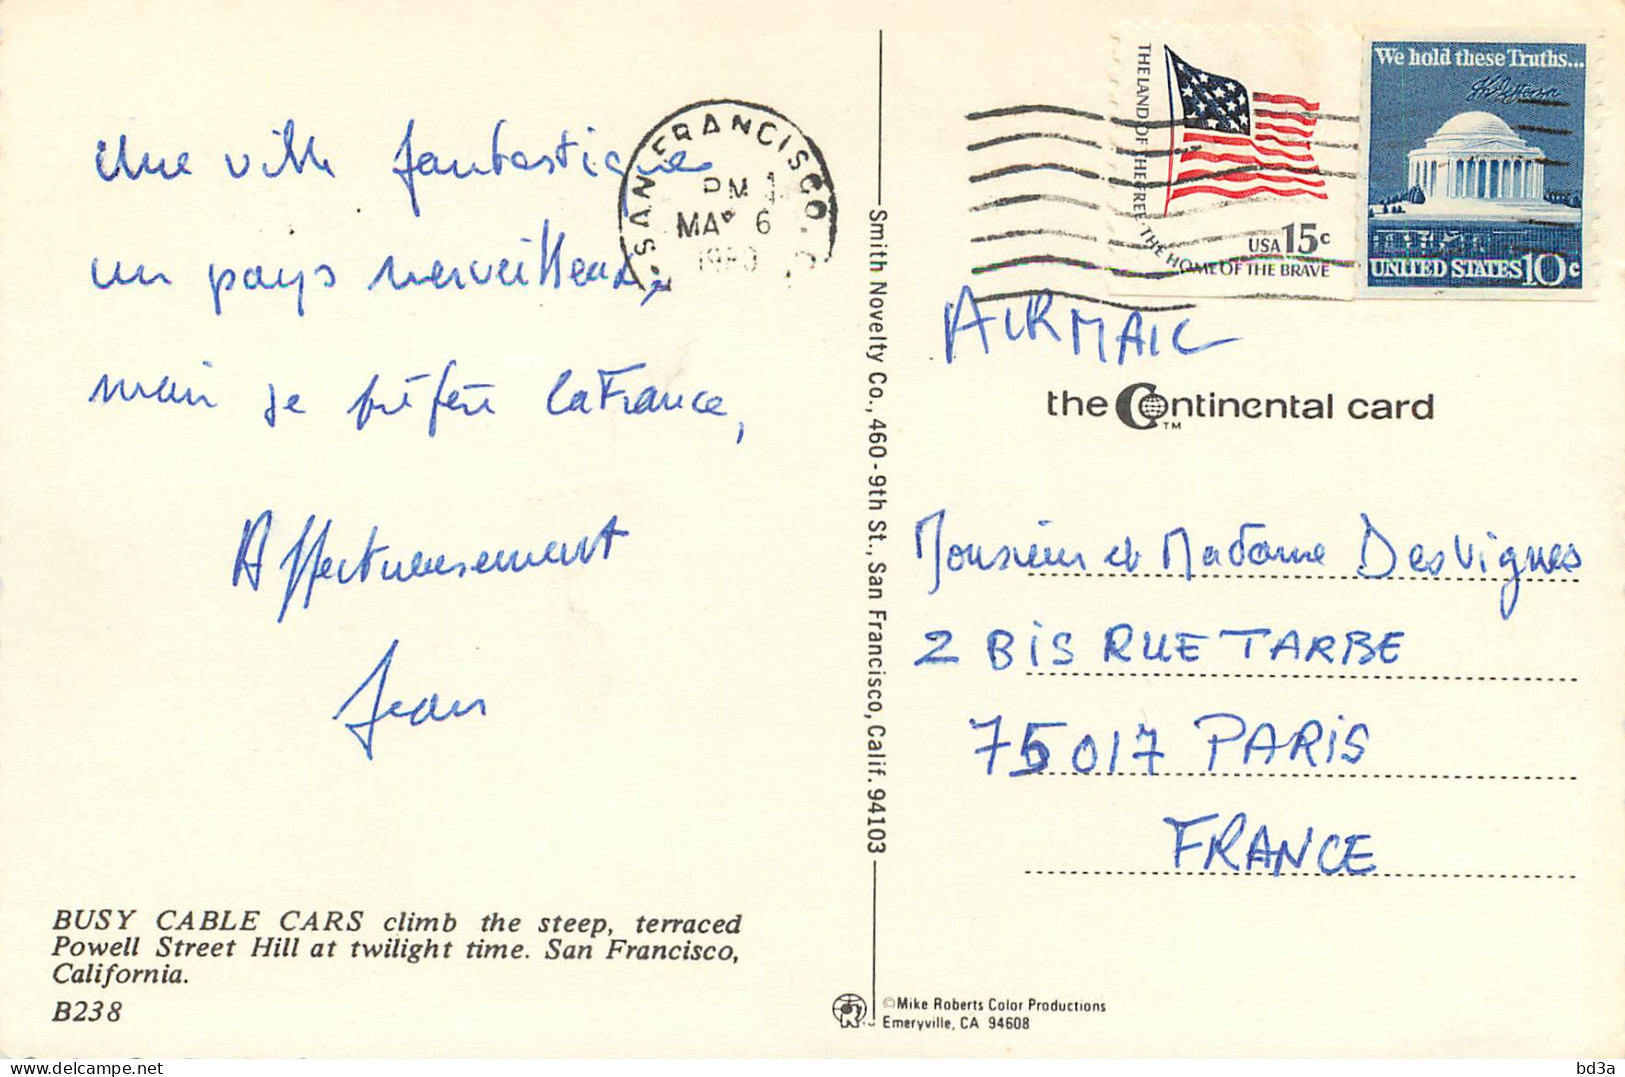 Une ville fantastique
un pays merveilleux,
mais je préfère la France,
Affectueusement
Jean
BUSY CABLE CARS climb the steep, terraced
Powell Street Hill at twilight time. San Francisco,
California.
B238
SAN FRANCISCO, C
PM
MAR 6
1980
Smith Novelty Co., 460-9th St., San Francisco, Calif. 94103
©Mike Roberts Color Productions
Emeryville, CA 94608
THE LAND OF THE FREE · THE HOME OF THE BRAVE
USA 15c
We hold these Truths...
Th Jefferson
UNITED STATES 10c
AIRMAIL
the Continental card
TM
Monsieur et Madame DesVignes
2 BIS RUE TARBE
75017 PARIS
FRANCE
delcampe.net
bd3a